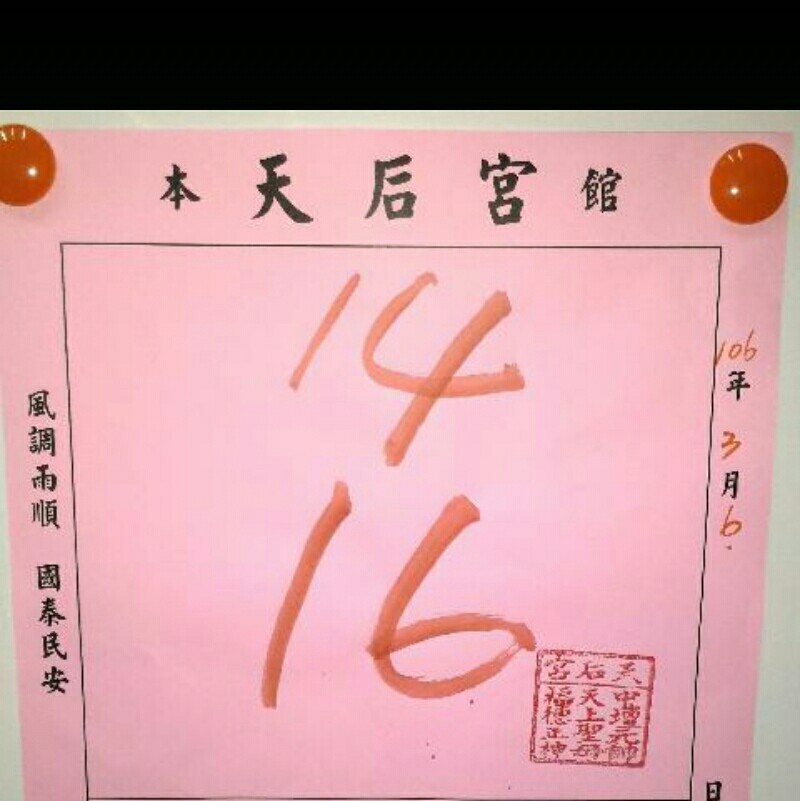 本天后宮館
14
16
106年3月6.
日
風調雨順 國泰民安
天后宮
中壇元帥
天上聖母
福德正神